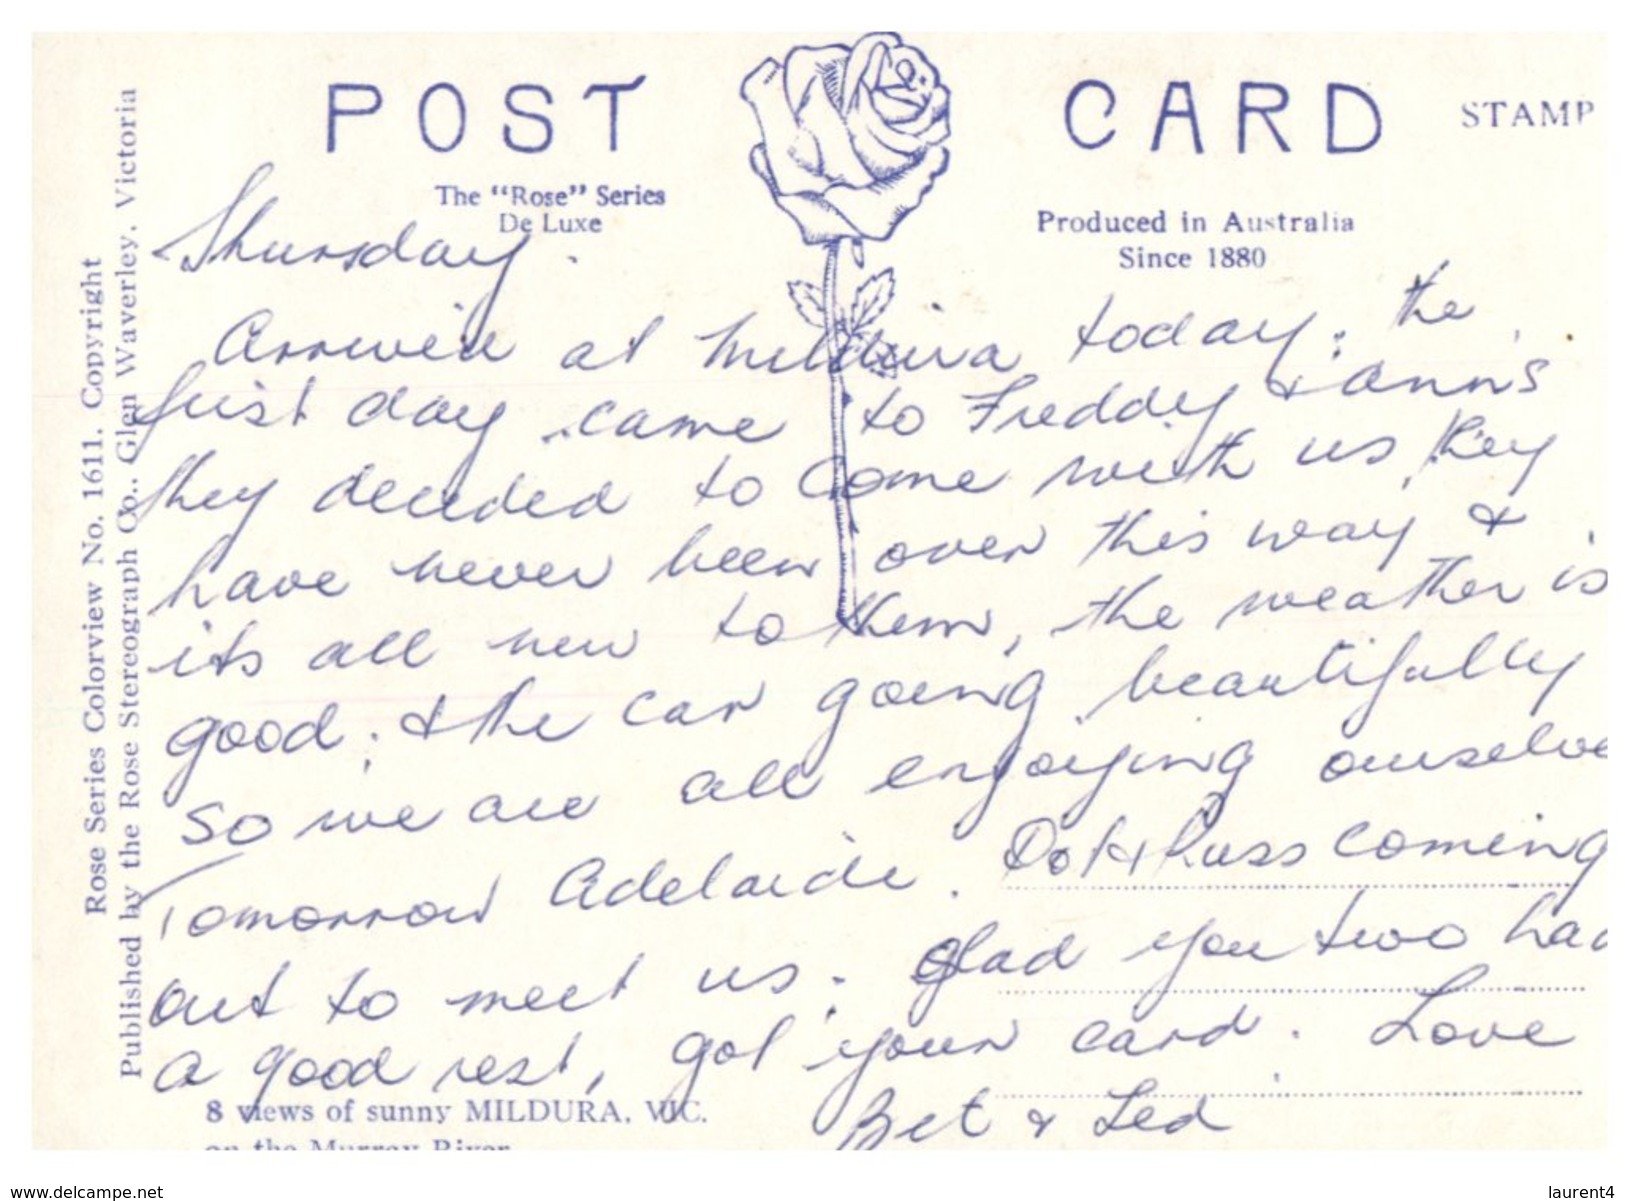 POST CARD STAMP
The "Rose" Series
De Luxe
Produced in Australia
Since 1880
Rose Series Colorview No. 1611. Copyright
Published by the Rose Stereograph Co., Glen Waverley, Victoria
Thursday.
Arrived at Mildura today. the
first day came to Freddy & Ann's
they decided to come with us, they
have never been over this way &
its all new to them, the weather is
good. & the car going beautifully
so we are all enjoying ourselve
Tomorrow Adelaide. Dot & Russ coming
out to meet us. Glad you two had
a good rest, got your card. Love
Bet & Ted
8 views of sunny MILDURA, VIC.
on the Murray River
www.delcampe.net
laurent4